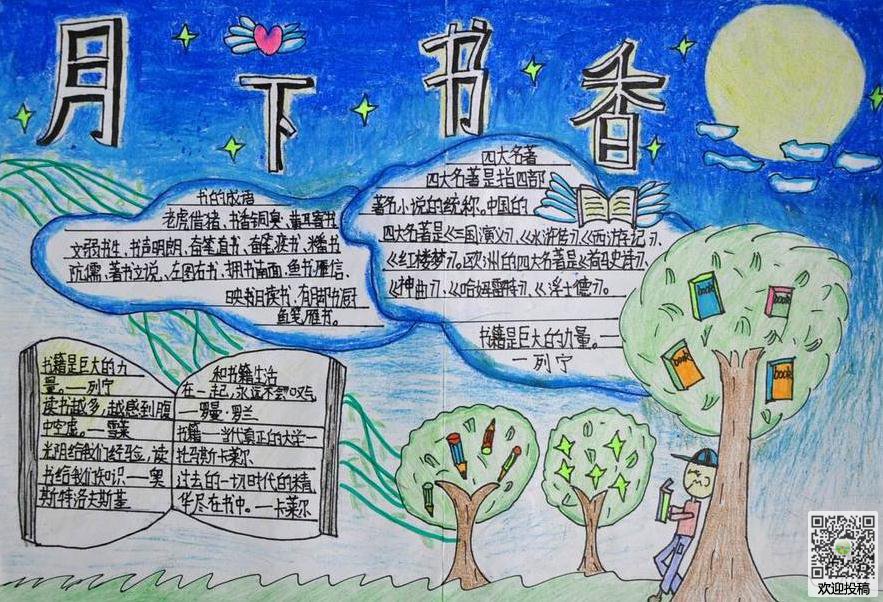 月下书香
书的成语
老虎借猪、书香铜臭、黄耳寄书
文弱书生、书声明朗、奋笔直书、奋笔疾书、楼书
坑儒、著书立说、左图右书、拥书南面、鱼书雁信、
映月读书、有脚书厨
鱼笺雁书。
四大名著
四大名著是指四部
著名小说的统称。中国的
四大名著是《三国演义》、《水浒传》、《西游记》、
《红楼梦》。欧洲的四大名著是《荷马史诗》、
《神曲》、《哈姆雷特》、《浮士德》。
书籍是巨大的力量。——
——列宁
书籍是巨大的力
量。——列宁
读书越多,越感到腹
中空虚。——雪莱
光阴给我们经验,读
书给我们知识——奥
斯特洛夫斯基
和书籍生活
在一起,永远不会叹气
——罗曼·罗兰
书籍——当代真正的大学——
托马斯卡莱尔
过去的一切时代的精
华尽在书中。——卡莱尔
book
book
book
book
欢迎投稿